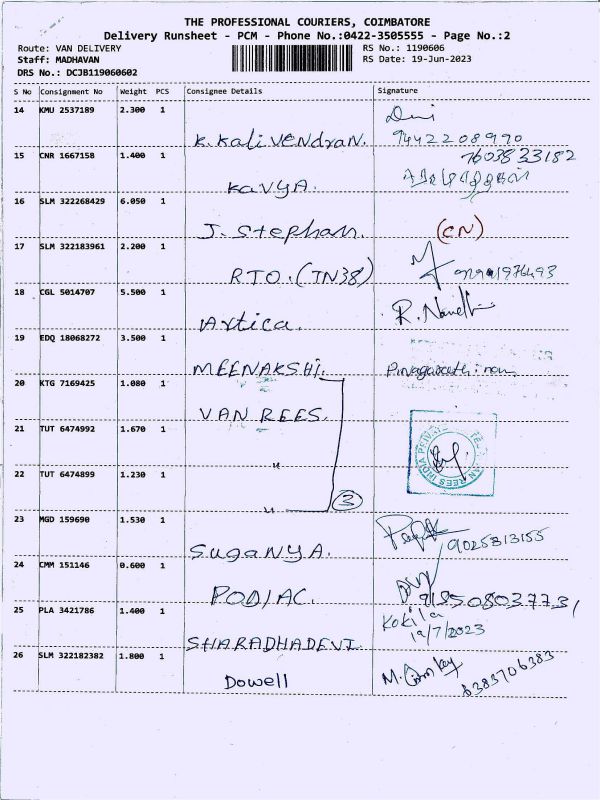 THE PROFESSIONAL COURIERS, COIMBATORE
Delivery Runsheet - PCM - Phone No.:0422-3505555 - Page No.:2
Route: VAN DELIVERY
RS No.: 1190606
Staff: MADHAVAN
RS Date: 19-Jun-2023
DRS No.: DCJB119060602
S No Consignment No Weight PCS Consignee Details Signature
14 KMU 2537189 2.300 1
K. Kalivendran. 9442208990
7603833182
15 CNR 1667158 1.400 1
KAVYA.
16 SLM 322268429 6.050 1
J. Stephan. (CN)
17 SLM 322183961 2.200 1
RTO. (TN38)
18 CGL 5014707 5.500 1
Artica.
19 EDQ 18068272 3.500 1
MEENAKSHI.
20 KTG 7169425 1.080 1
VAN REES.
21 TUT 6474992 1.670 1
"
22 TUT 6474899 1.230 1
" 3
23 MGD 159690 1.530 1
SUGANYA. 9025313155
24 CMM 151146 0.600 1
PODIAC.
25 PLA 3421786 1.400 1
Kokila
19/7/2023
SHARADHADEVI.
26 SLM 322182382 1.800 1
Dowell 8383706383